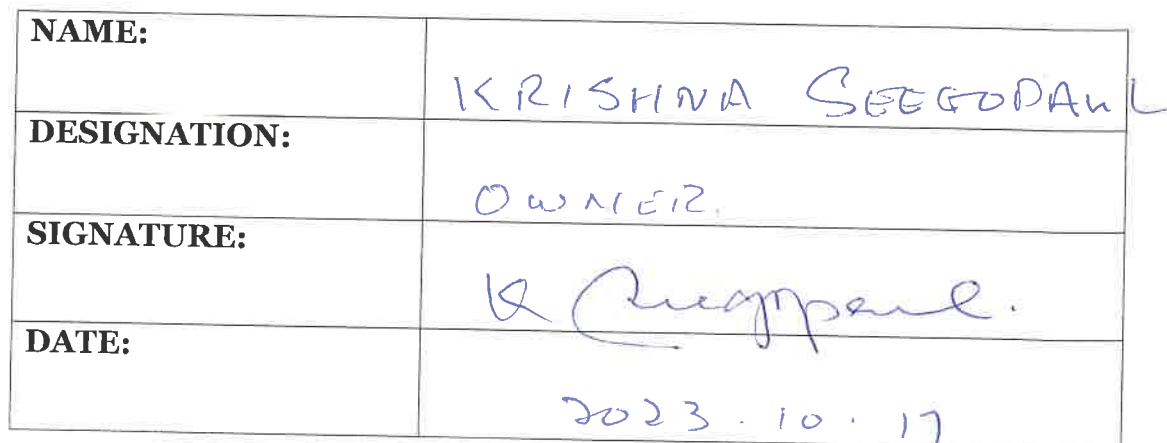 NAME:
KRISHNA SEEGOPAUL
DESIGNATION:
OWNER.
SIGNATURE:
K Seegopaul.
DATE:
2023.10.17